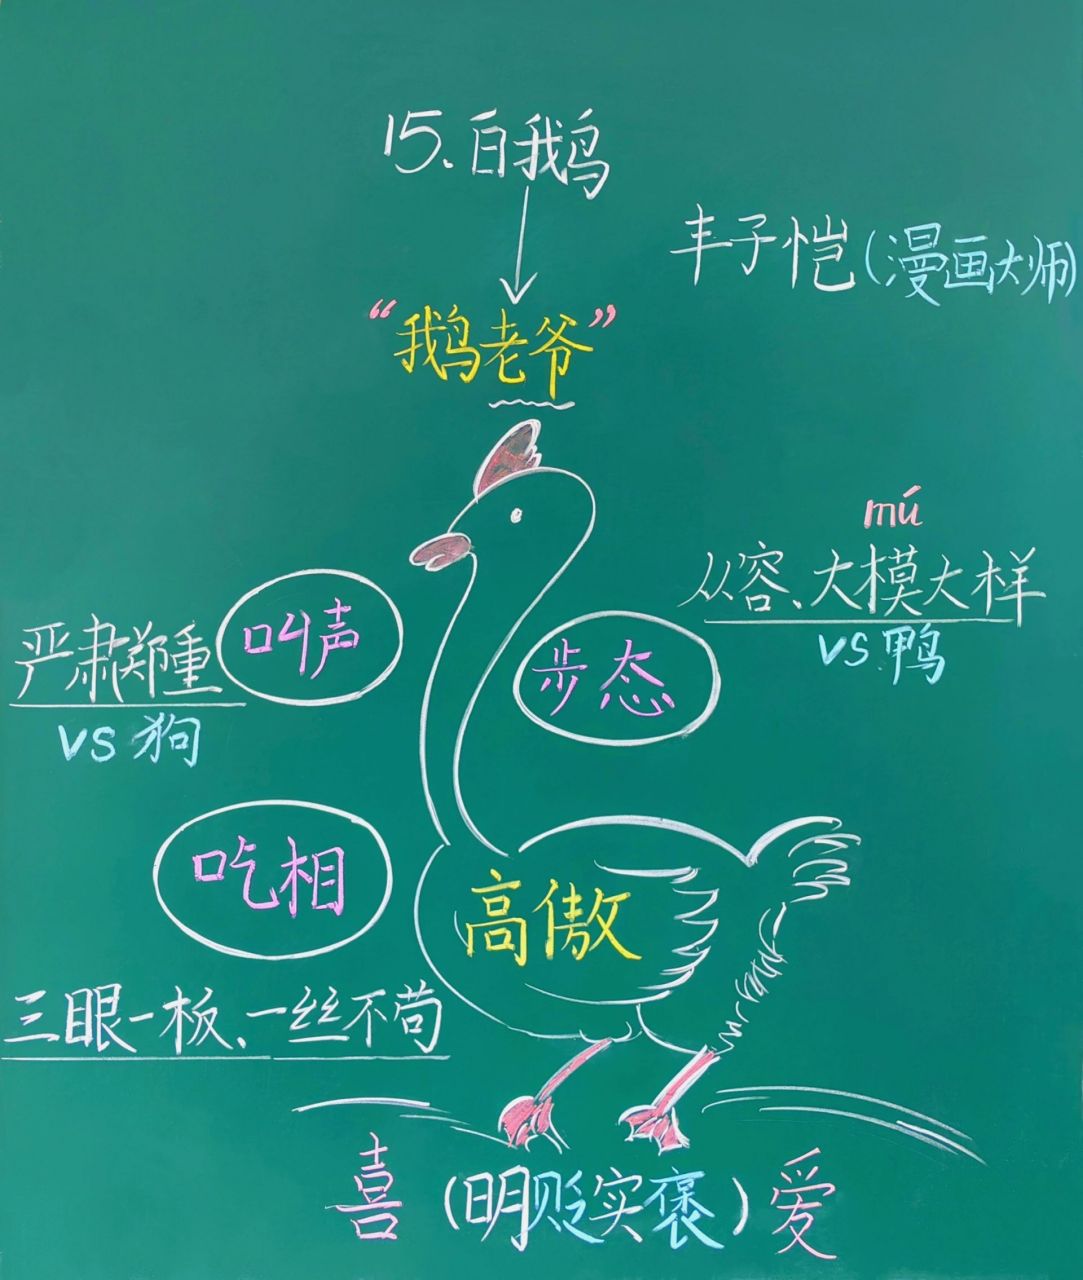 15.白鹅
丰子恺(漫画大师)
“鹅老爷”
mú
从容、大模大样
vs 鸭
叫声
严肃郑重
vs 狗
步态
吃相
高傲
三眼一板、一丝不苟
喜(明贬实褒)爱